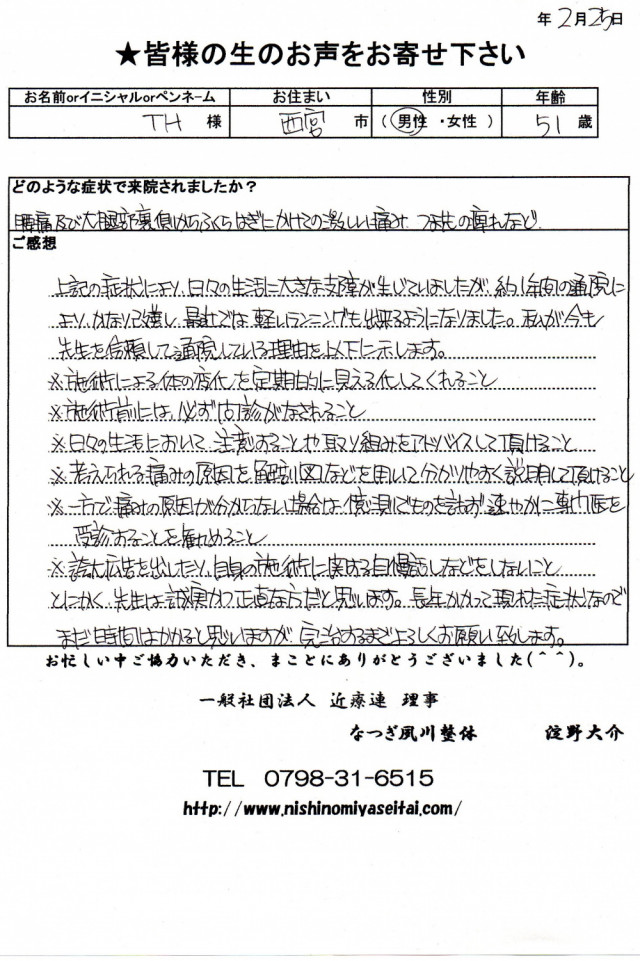 年 2月25日
★皆様の生のお声をお寄せ下さい
お名前orイニシャルorペンネーム お住まい 性別 年齢
TH 様 西宮 市 (男性・女性) 51 歳
どのような症状で来院されましたか?
腰痛及び大腿部裏側からふくらはぎにかけての激しい痛み つま先の痺れなど
ご感想
上記の症状により、日々の生活に大きな支障が生じていましたが、約1年間の通院に
よりかなり改善し、最近では軽いランニングも出来るようになりました。私が今も
先生を信頼して通院している理由を以下に示します。
※施術による体の変化を定期的に見える化してくれること
※施術前には、必ず問診がなされること
※日々の生活において、注意することや取り組みをアドバイスして頂けること
※考えられる痛みの原因を解剖図などを用いて分かりやすく説明して頂けること
※一方で痛みの原因が分からない場合は、憶測でものを話さず速やかに専門医を
受診することを勧めること
※誇大広告を出したり、自身の施術に関する自慢話しなどをしないこと
とにかく、先生は誠実かつ正直な方だと思います。長年かかって現れた症状なので
まだ時間はかかると思いますが、完治するまでよろしくお願い致します。
お忙しい中ご協力いただき、まことにありがとうございました(^ ^)。
一般社団法人 近療連 理事
なつぎ夙川整体 淀野大介
TEL 0798-31-6515
http://www.nishinomiyaseitai.com/